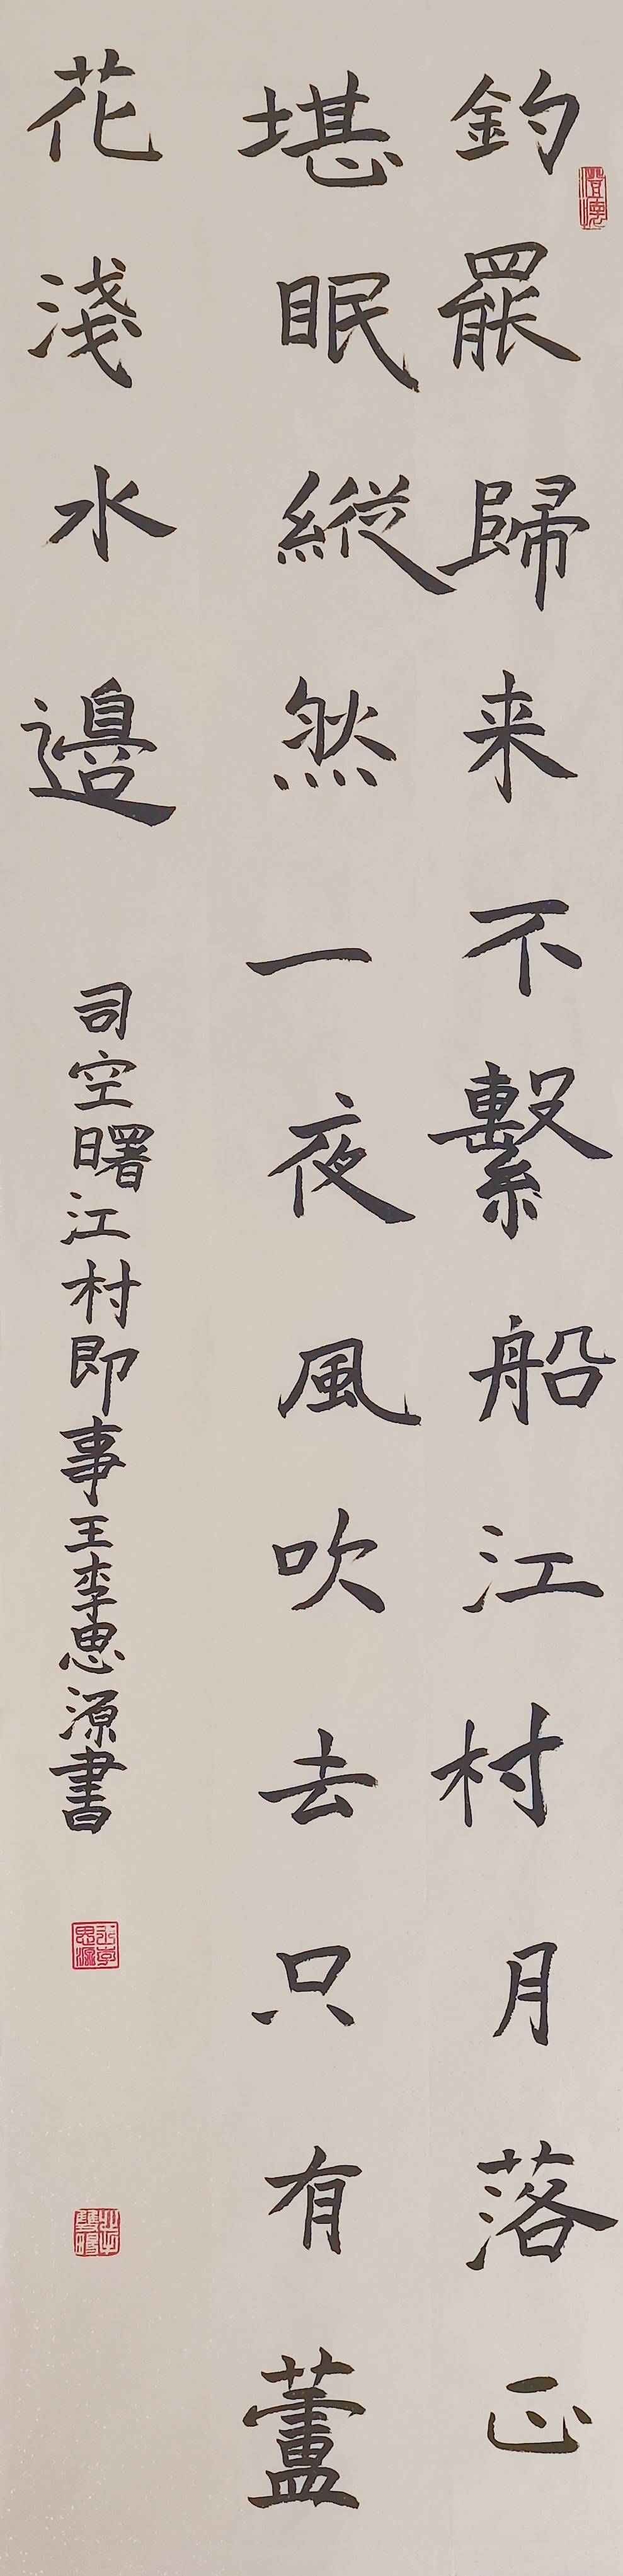 釣罷歸来不繫船江村月落正
堪眠縱然一夜風吹去只有蘆
花淺水邊
司空曙江村即事王李思源書